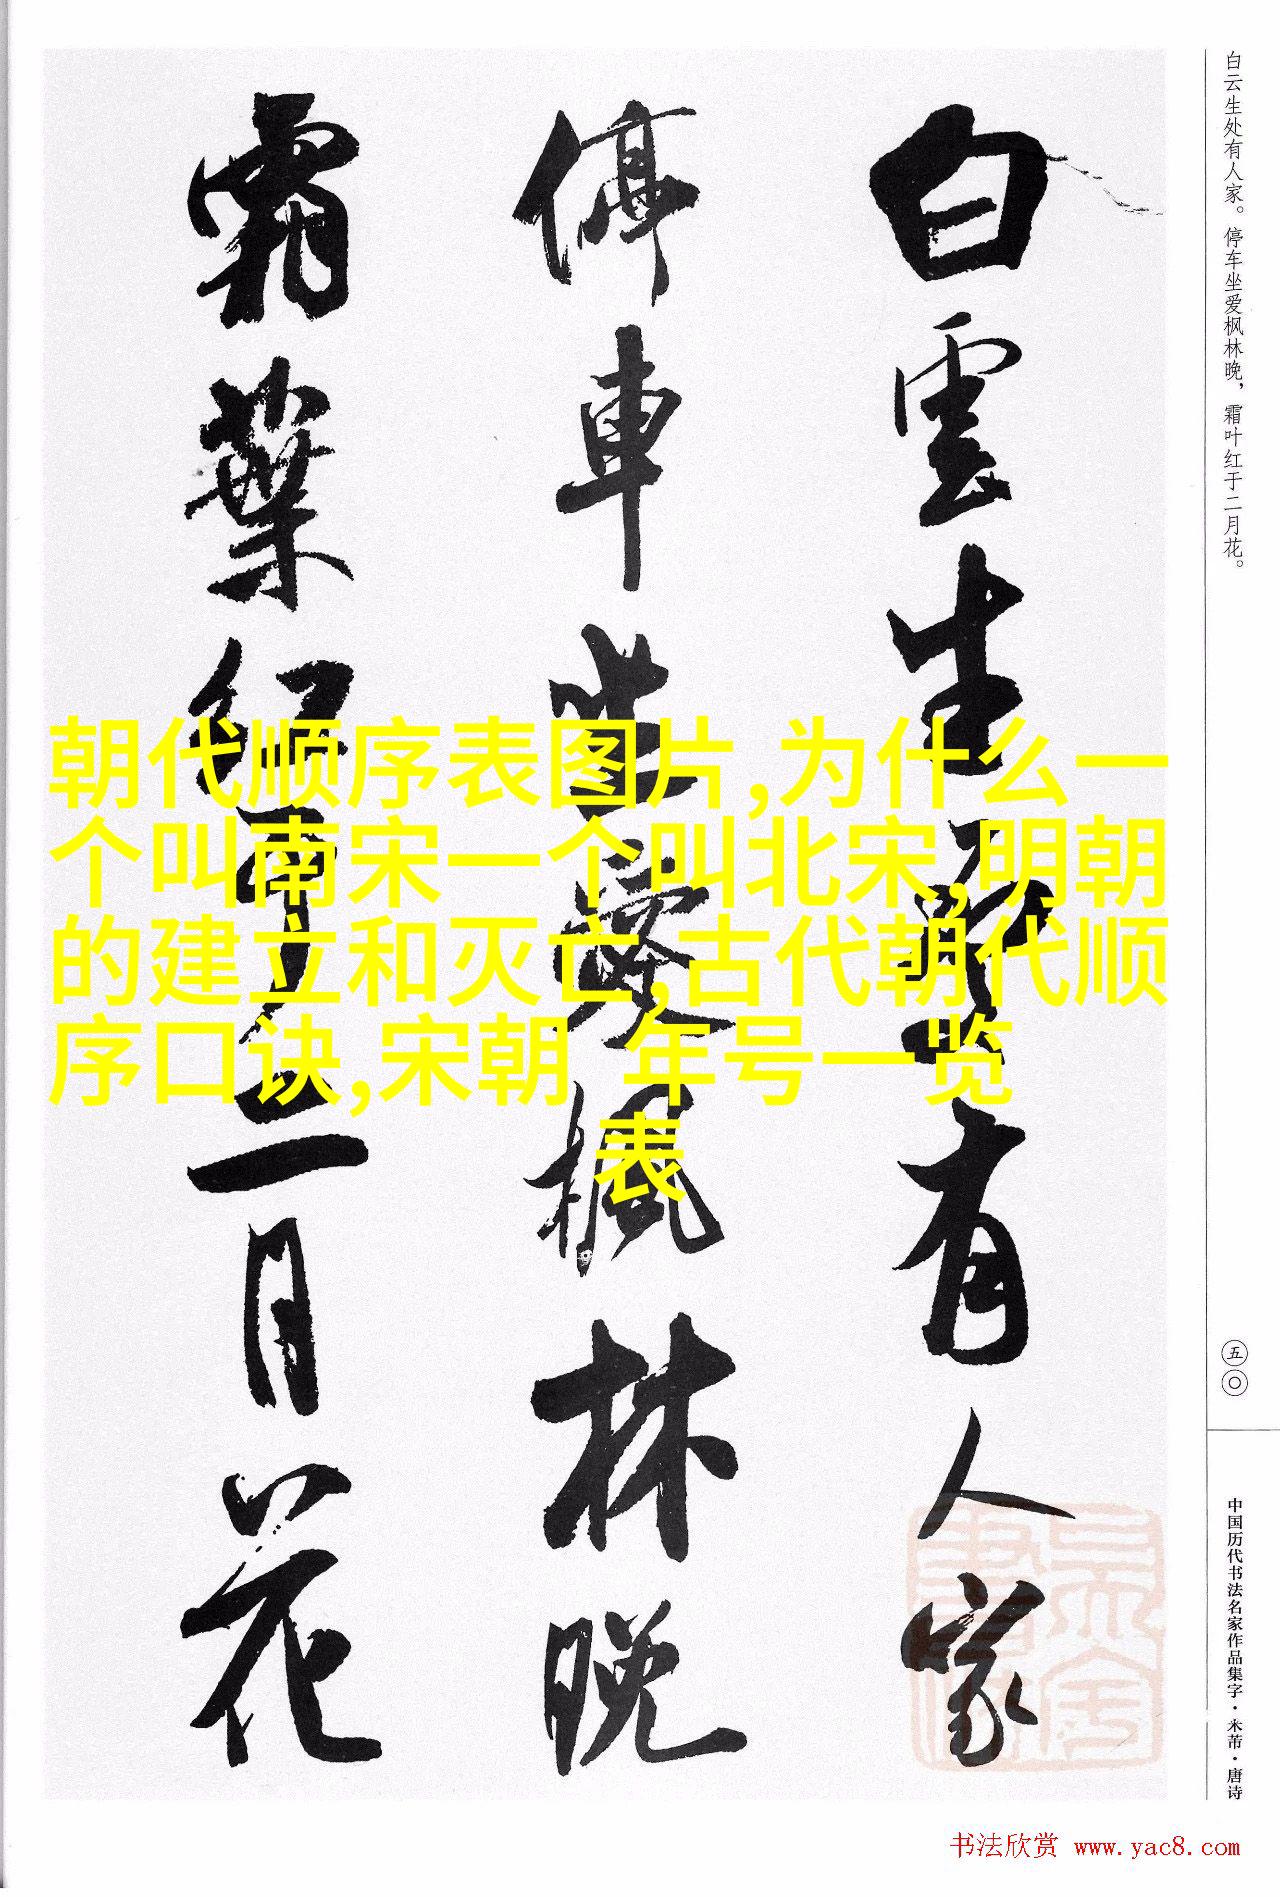 白云生处有人家。停车坐爱枫林晚，霜叶红于二月花。
白雲生處有人家
停車坐愛楓林晚
霜葉紅于二月花
朝代顺序表图片,为什么一
个叫南宋一个叫北宋,明朝
的建立和灭亡,古代朝代顺
序口诀,宋朝 年号一览
表
五〇
中国历代书法名家作品集字·米芾·唐诗
书法欣赏 www.yac8.com